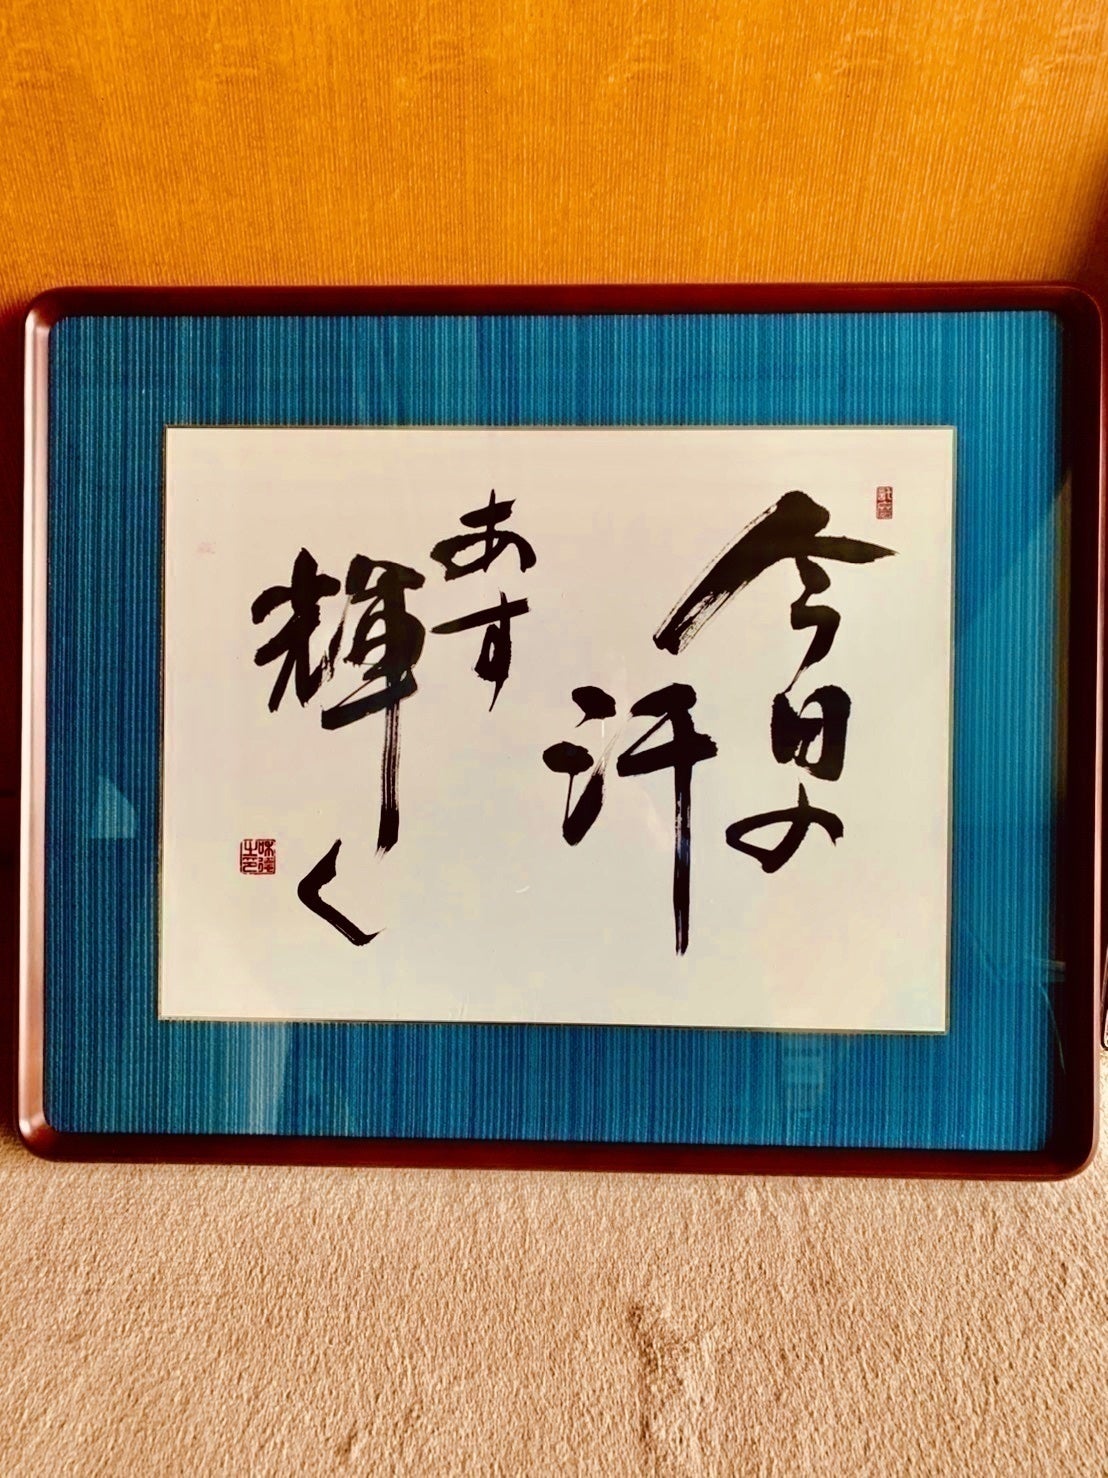 今日の
汗
あす
輝く